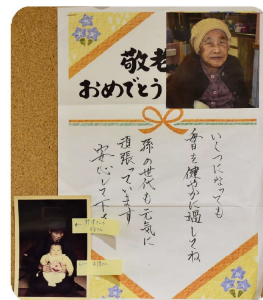 敬老
おめでとう
いくつになっても
毎日を健やかに過してね
孫の世代も元気に
頑張っています
安心して下さい